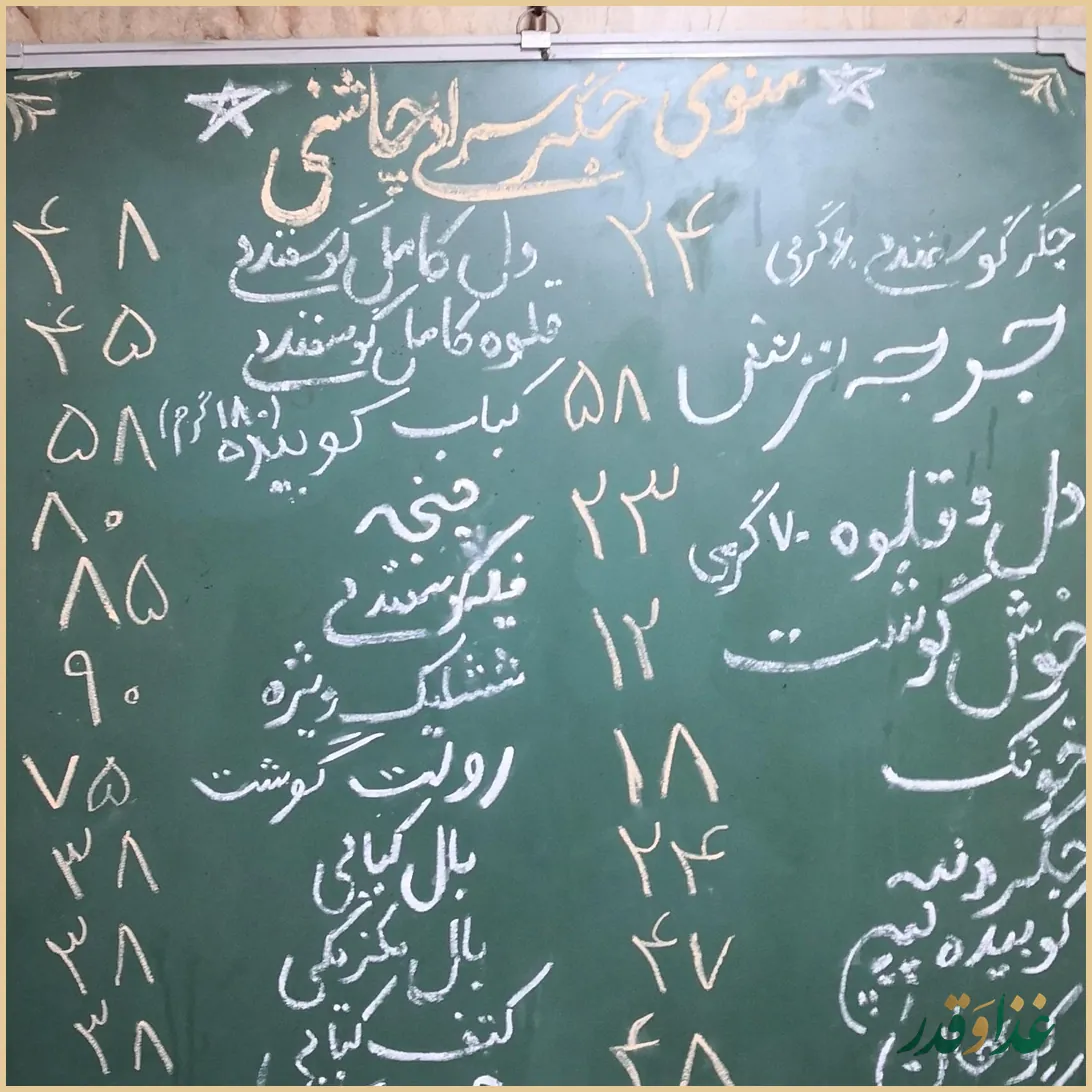 منوی جگرسرای چاشنی
جگر گوسفندی ۶۰ گرمی ۲۴
جوجه ترش ۵۸
دل و قلوه ۷۰ گرمی ۲۳
خوش گوشت ۱۲
خوئک ۱۸
جگر دنبه ۲۴
کوبیده لپیپر ۴۷
۴۸
دل کامل گوسفندی ۴۸
قلوه کامل گوسفندی ۴۵
کباب کوبیده (۱۸۰ گرم) ۵۸
چنجه ۸۰
فیله گوسفندی ۸۵
شیشلیک ویژه ۹۰
رولت گوشت ۷۵
بال کبابی ۳۸
بال مکزیکی ۳۸
کتف کبابی ۳۸
غذا و قدر